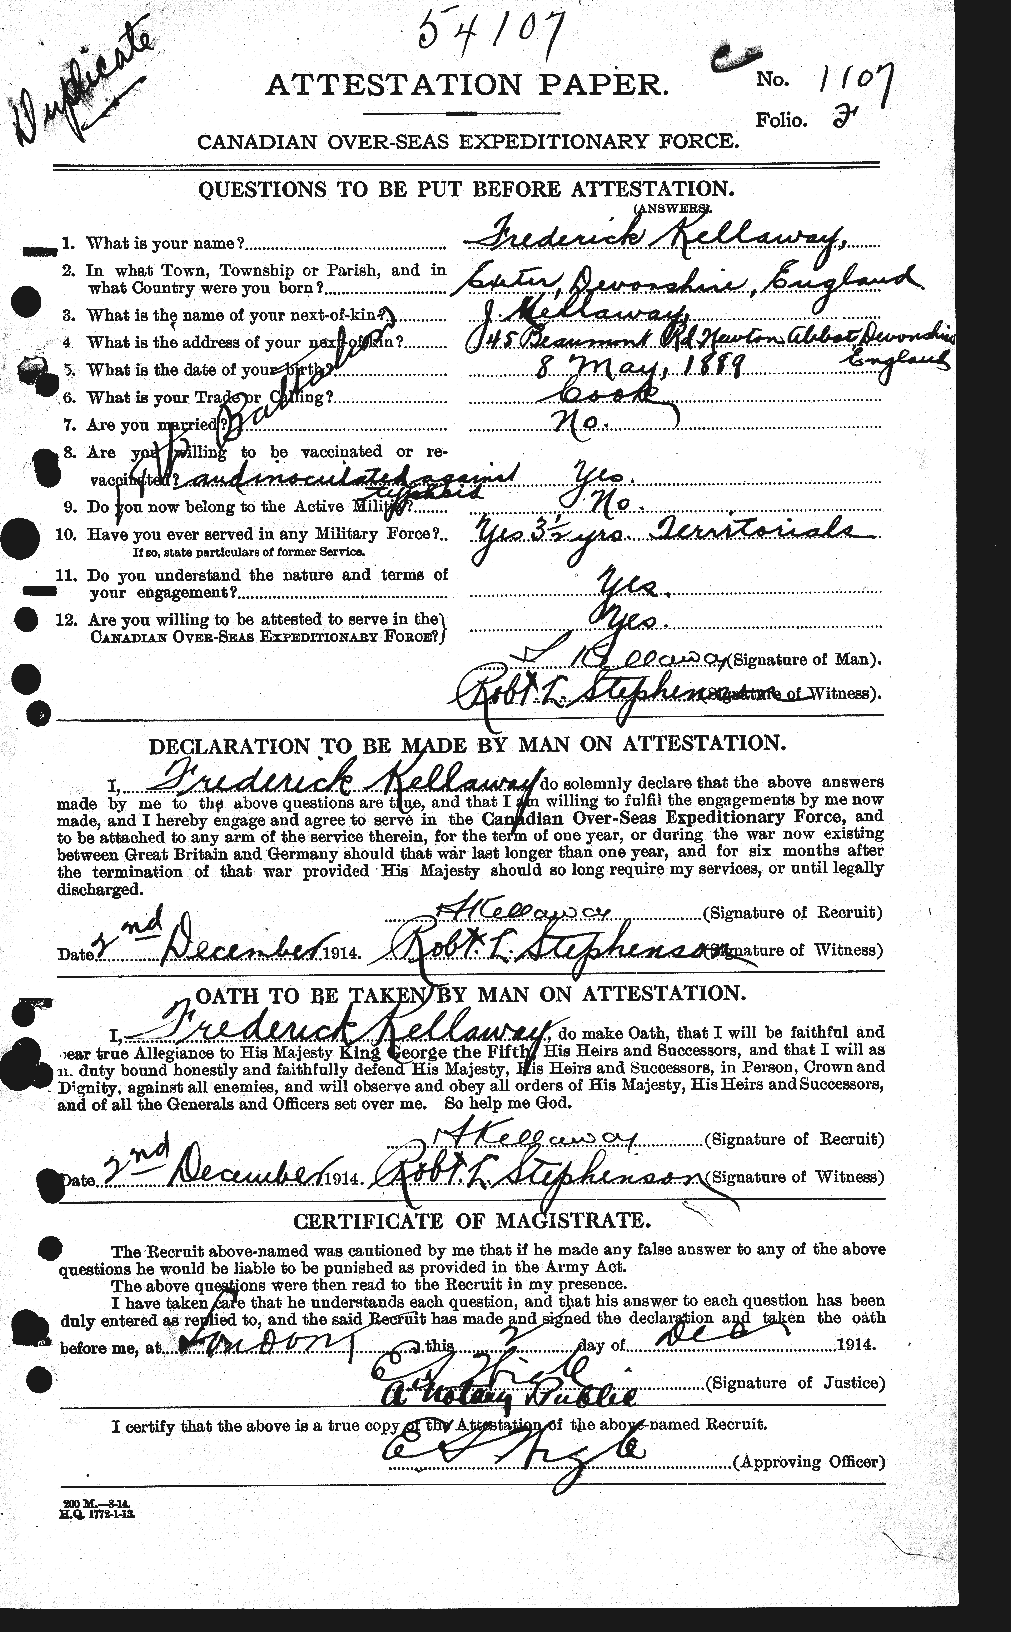 54107
Duplicate
ATTESTATION PAPER.
No. 1107
Folio.
CANADIAN OVER-SEAS EXPEDITIONARY FORCE.
QUESTIONS TO BE PUT BEFORE ATTESTATION.
(ANSWERS).
1. What is your name? Frederick Kellaway,
2. In what Town, Township or Parish, and in
what Country were you born? Exeter, Devonshire, England
3. What is the name of your next-of-kin? J. Kellaway,
4. What is the address of your next-of-kin? 145 Beaumont Rd Newton Abbot Devonshire
England
5. What is the date of your birth? 8 May, 1889
6. What is your Trade or Calling? Cook
7. Are you married? No.
8. Are you willing to be vaccinated or re-
vaccinated? and inoculated against Yes.
typhoid
9. Do you now belong to the Active Militia? No.
10. Have you ever served in any Military Force? Yes 3½ yrs. Territorials
If so, state particulars of former Service.
11. Do you understand the nature and terms of
your engagement? Yes.
12. Are you willing to be attested to serve in the
CANADIAN OVER-SEAS EXPEDITIONARY FORCE? Yes.
18th Battalion
F Kellaway (Signature of Man).
Robt. L. Stephenson (Signature of Witness).
DECLARATION TO BE MADE BY MAN ON ATTESTATION.
I, Frederick Kellaway do solemnly declare that the above answers
made by me to the above questions are true, and that I am willing to fulfil the engagements by me now
made, and I hereby engage and agree to serve in the Canadian Over-Seas Expeditionary Force, and
to be attached to any arm of the service therein, for the term of one year, or during the war now existing
between Great Britain and Germany should that war last longer than one year, and for six months after
the termination of that war provided His Majesty should so long require my services, or until legally
discharged.
F Kellaway (Signature of Recruit)
Date 2nd December 1914. Robt. L. Stephenson (Signature of Witness)
OATH TO BE TAKEN BY MAN ON ATTESTATION.
I, Frederick Kellaway, do make Oath, that I will be faithful and
bear true Allegiance to His Majesty King George the Fifth, His Heirs and Successors, and that I will as
in duty bound honestly and faithfully defend His Majesty, His Heirs and Successors, in Person, Crown and
Dignity, against all enemies, and will observe and obey all orders of His Majesty, His Heirs and Successors,
and of all the Generals and Officers set over me. So help me God.
F Kellaway (Signature of Recruit)
Date 2nd December 1914. Robt. L. Stephenson (Signature of Witness)
CERTIFICATE OF MAGISTRATE.
The Recruit above-named was cautioned by me that if he made any false answer to any of the above
questions he would be liable to be punished as provided in the Army Act.
The above questions were then read to the Recruit in my presence.
I have taken care that he understands each question, and that his answer to each question has been
duly entered as replied to, and the said Recruit has made and signed the declaration and taken the oath
before me, at London this 2 day of Dec 1914.
E S Wigle (Signature of Justice)
A Notary Public
I certify that the above is a true copy of the Attestation of the above-named Recruit.
E S Wigle (Approving Officer)
200 M.—8-14.
H.Q. 1772-1-13.